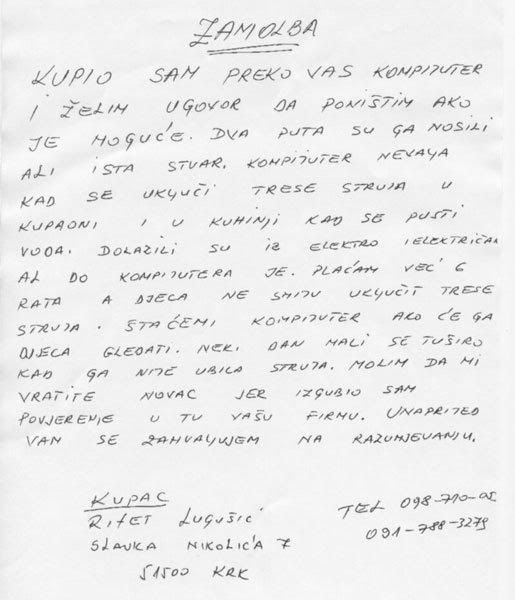 ZAMOLBA
KUPIO SAM PREKO VAS KOMPIJUTER
I ŽELIM UGOVOR DA PONIŠTIM AKO
JE MOGUĆE. DVA PUTA SU GA NOSILI
ALI ISTA STVAR. KOMPIJUTER NEVAYA
KAD SE UKLJUČI TRESE STRUJA U
KUPAONI I U KUHINJI KAD SE PUSTI
VODA. DOLAZILI SU IZ ELEKTRO I ELEKTRIČAR
AL DO KOMPIJUTERA JE. PLAĆAM VEĆ 6
RATA A DJECA NE SMIJU UKLJUČIT TRESE
STRUJA. ŠTAĆEMI KOMPIJUTER AKO ĆE GA
DJECA GLEDATI. NEKI DAN MALI SE TUŠIRO
KAD GA NIJE UBILA STRUJA. MOLIM DA MI
VRATITE NOVAC JER IZGUBIO SAM
POVJERENJE U TU VAŠU FIRMU. UNAPRIJED
VAM SE ZAHVALJUJEM NA RAZUMJEVANJU.
KUPAC
RIFET LUGUŠIĆ
SLAVKA NIKOLIĆA 7
51500 KRK
TEL 098-710-05
091-788-3279